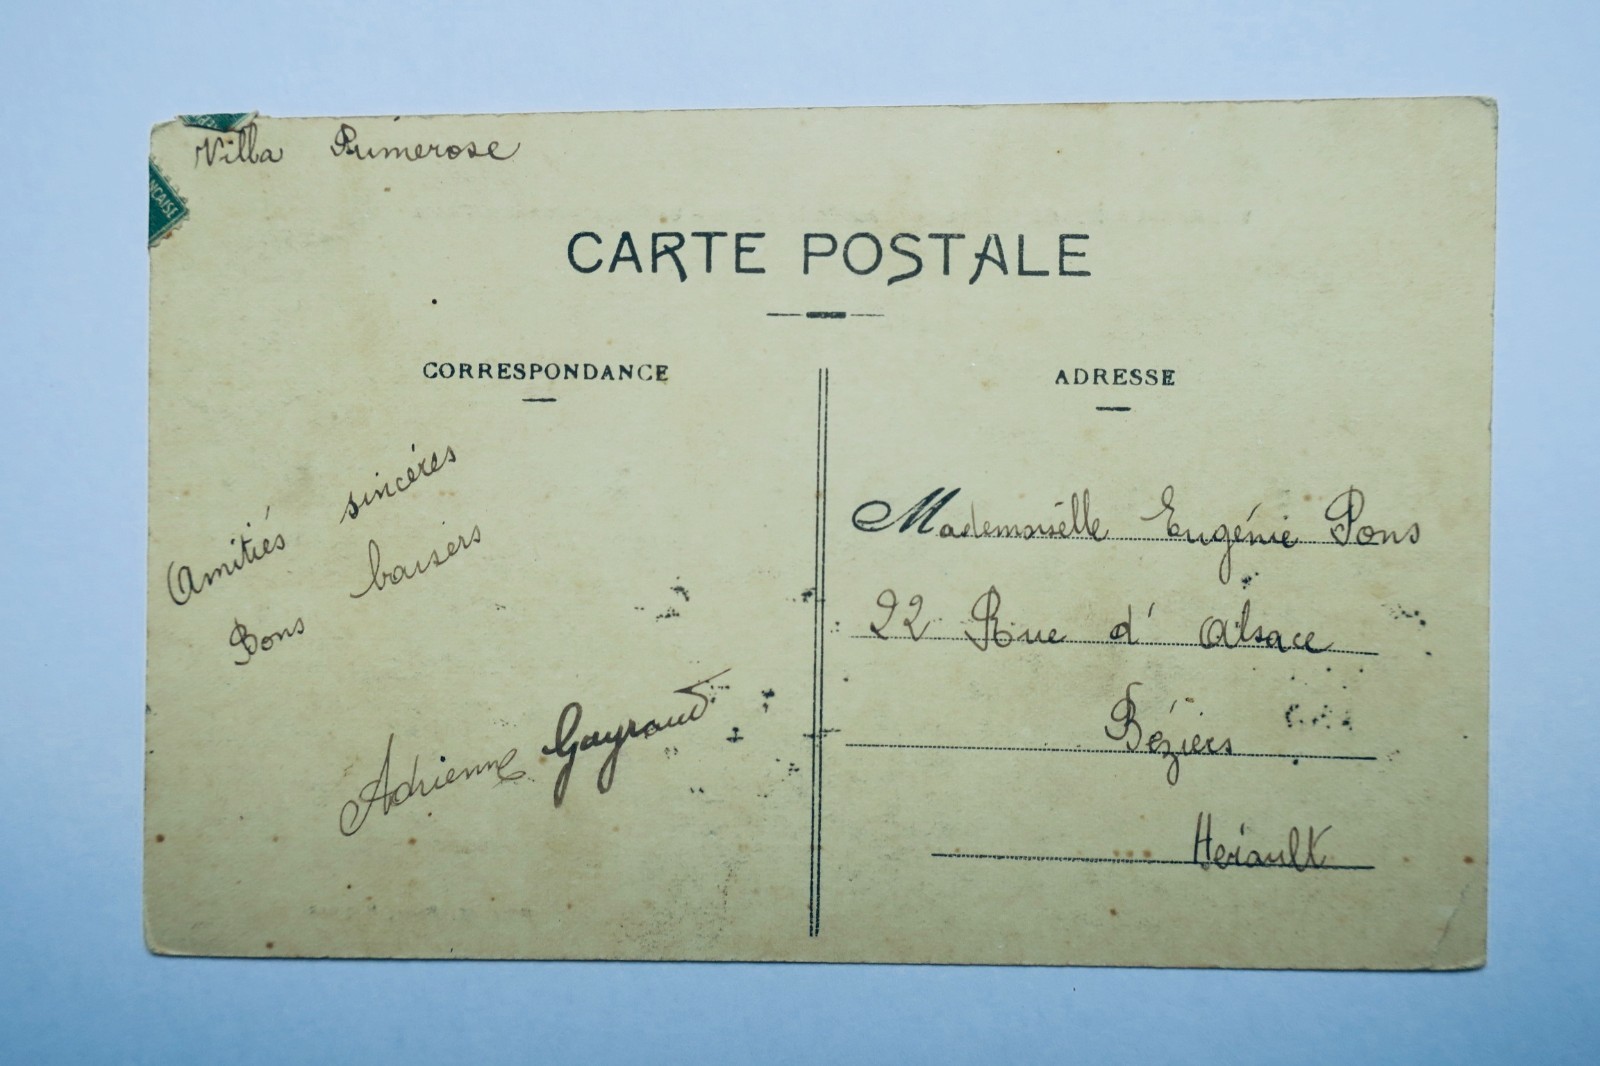 Villa Primerose
NÇAISE
CARTE POSTALE
CORRESPONDANCE
Amitiés sincéres
Bons baisers
Adrienne Gayraud
ADRESSE
Mademoiselle Eugénie Pons
22 Rue d' Alsace
Béziers
Herault